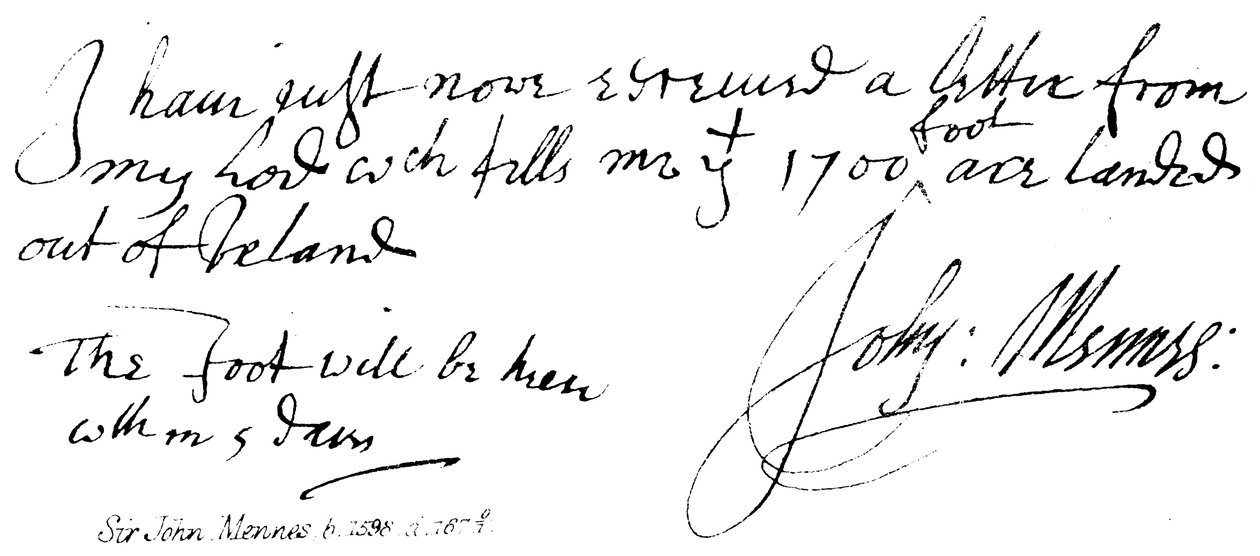 I haue just nowe receiued a letter from
my Lord wch tells me yt 1700 foot are landed
out of Ireland
John: Mennes:
The foot will be heere
wthin 5 daies
Sir John Mennes b. 1598 d. 167 0/1.